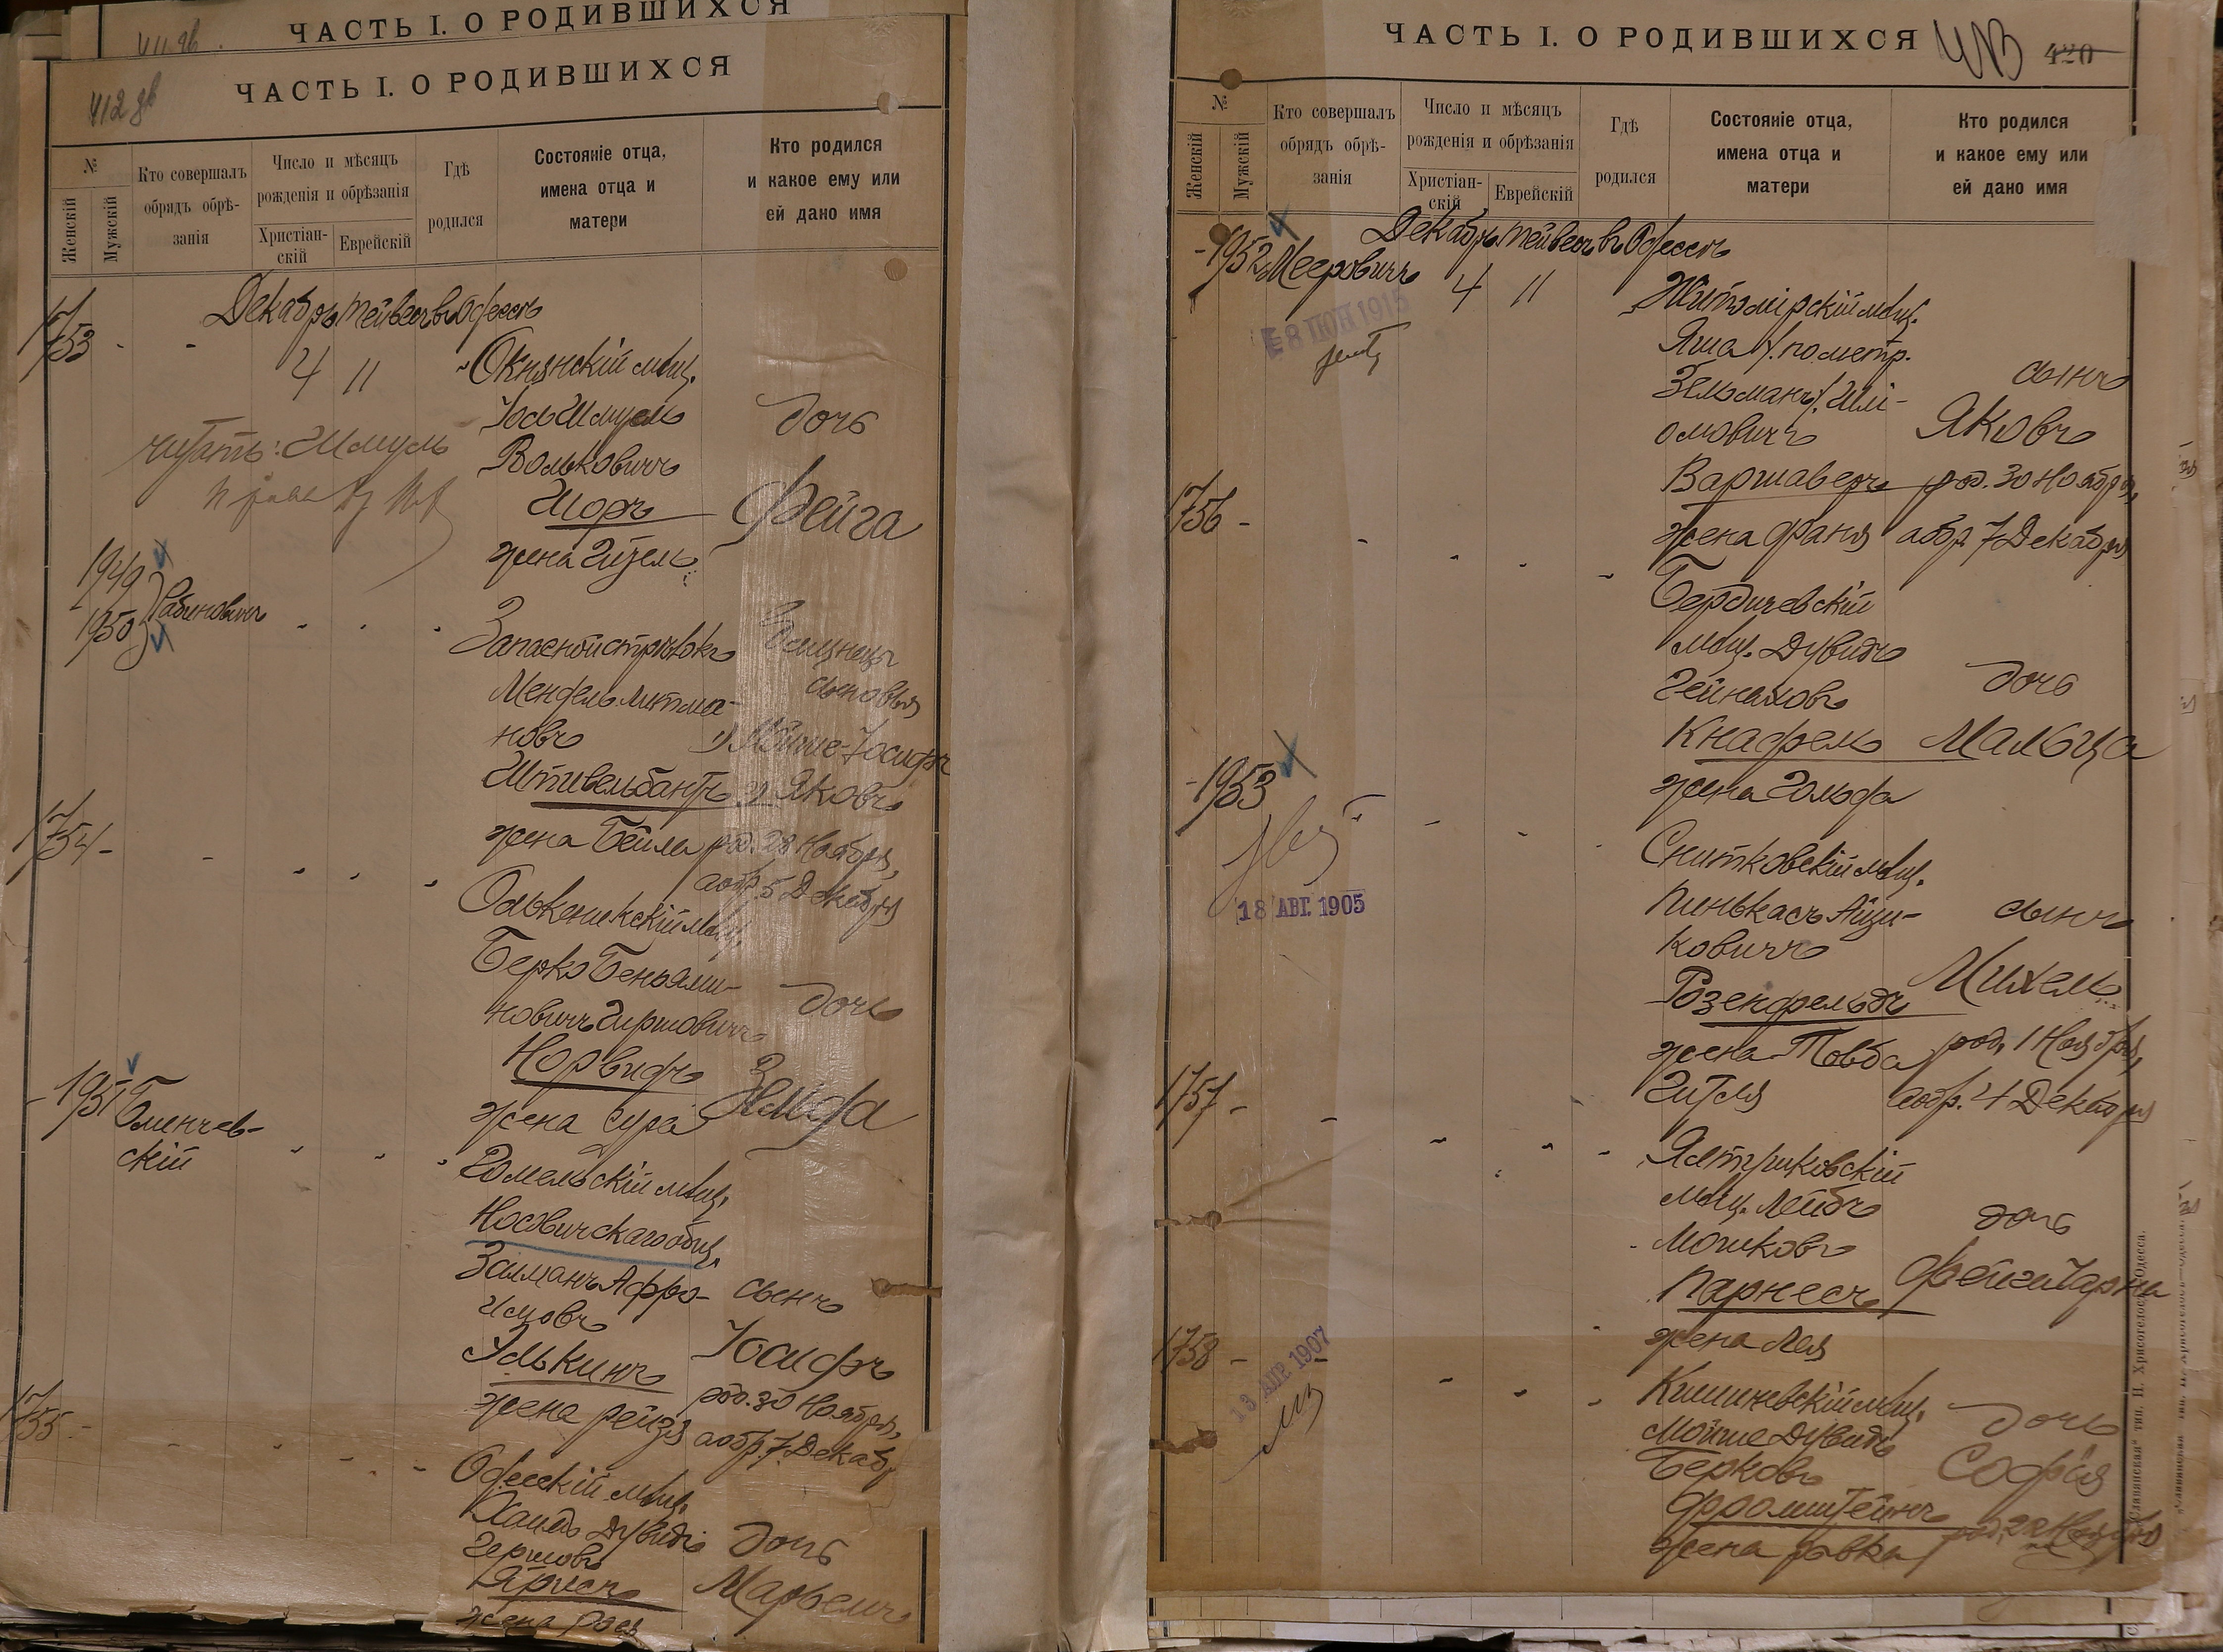 ЧАСТЬ I. О РОДИВШИХСЯ
ЧАСТЬ I. О РОДИВШИХСЯ
№
Женскій
Мужскій
Кто совершалъ
обрядъ обрѣ-
занія
Число и мѣсяцъ
рожденія и обрѣзанія
Христіан-
скій
Еврейскій
Гдѣ
родился
Состояніе отца,
имена отца и
матери
Кто родился
и какое ему или
ей дано имя
Декабрь Тейвесъ въ Одессѣ
1753 - -
4 11
Окнянскій мѣщ.
Іось Шмуель
Вольковичъ
Шоръ
жена Гизель
дочь
Фейга
читать: Шмуль
1949
1950
Рабиновичъ
Запасной стрѣлокъ
Мендель
новъ
Штивельбантъ
жена Бейла
близнецы
сыновья
1) Мойше-Іосифъ
2) Яковъ
род. 28 Ноября,
а обр. 5 Декабря
1754 -
Олькеникскій мѣщ.
Берко Беньями-
новичъ Гиршовичъ
Норвидъ
жена Сура
дочь
Зельда
- 1951
Бленчев-
скій
Гомельскій мѣщ.
Носовичскаго общ.
Залманъ Афро-
имовъ
Элькинъ
жена Рейзя
сынъ
Іосифъ
род. 30 Ноября,
а обр. 7 Декабр
1755 -
Одесскій мѣщ.
Хаимъ Дувидъ
Гершовъ
жена
дочь
ЧАСТЬ I. О РОДИВШИХСЯ
420
№
Женскій
Мужскій
Кто совершалъ
обрядъ обрѣ-
занія
Число и мѣсяцъ
рожденія и обрѣзанія
Христіан-
скій
Еврейскій
Гдѣ
родился
Состояніе отца,
имена отца и
матери
Кто родился
и какое ему или
ей дано имя
Декабрь Тейвесъ въ Одессѣ
- 1952
Мееровичъ
4 11
8 ІЮН 1915
Житомірскій мѣщ.
Яша /: по метр.
Зельманъ :/ Шлі-
омовичъ
Варшаверъ
жена Фаня
сынъ
Яковъ
род. 30 Ноября,
а обр. 7 Декабря
1756 -
Бердичевскій
мѣщ. Дувидъ
Гейнаховъ
Кнафель
жена Гольда
дочь
Мальца
- 1953
18 АВГ. 1905
Снитковскій мѣщ.
Пинькасъ Айзи-
ковичъ
Розенфельдъ
жена Товба
Гитля
сынъ
Михель
род. 1 Ноября,
а обр. 4 Декабря
1757 -
Ялтушковскій
мѣщ. Лейбъ
Мошковъ
Парнесъ
жена Лея
дочь
Фейга Чарна
1758 -
13 АПР 1907
Кишиневскій мѣщ.
Мойше Дувидъ
Берковъ
Фромштейнъ
жена Ривка
дочь
Софія
род. 22 Ноября
"Славянская" тип. Н. Хрисогелосъ, Одесса.